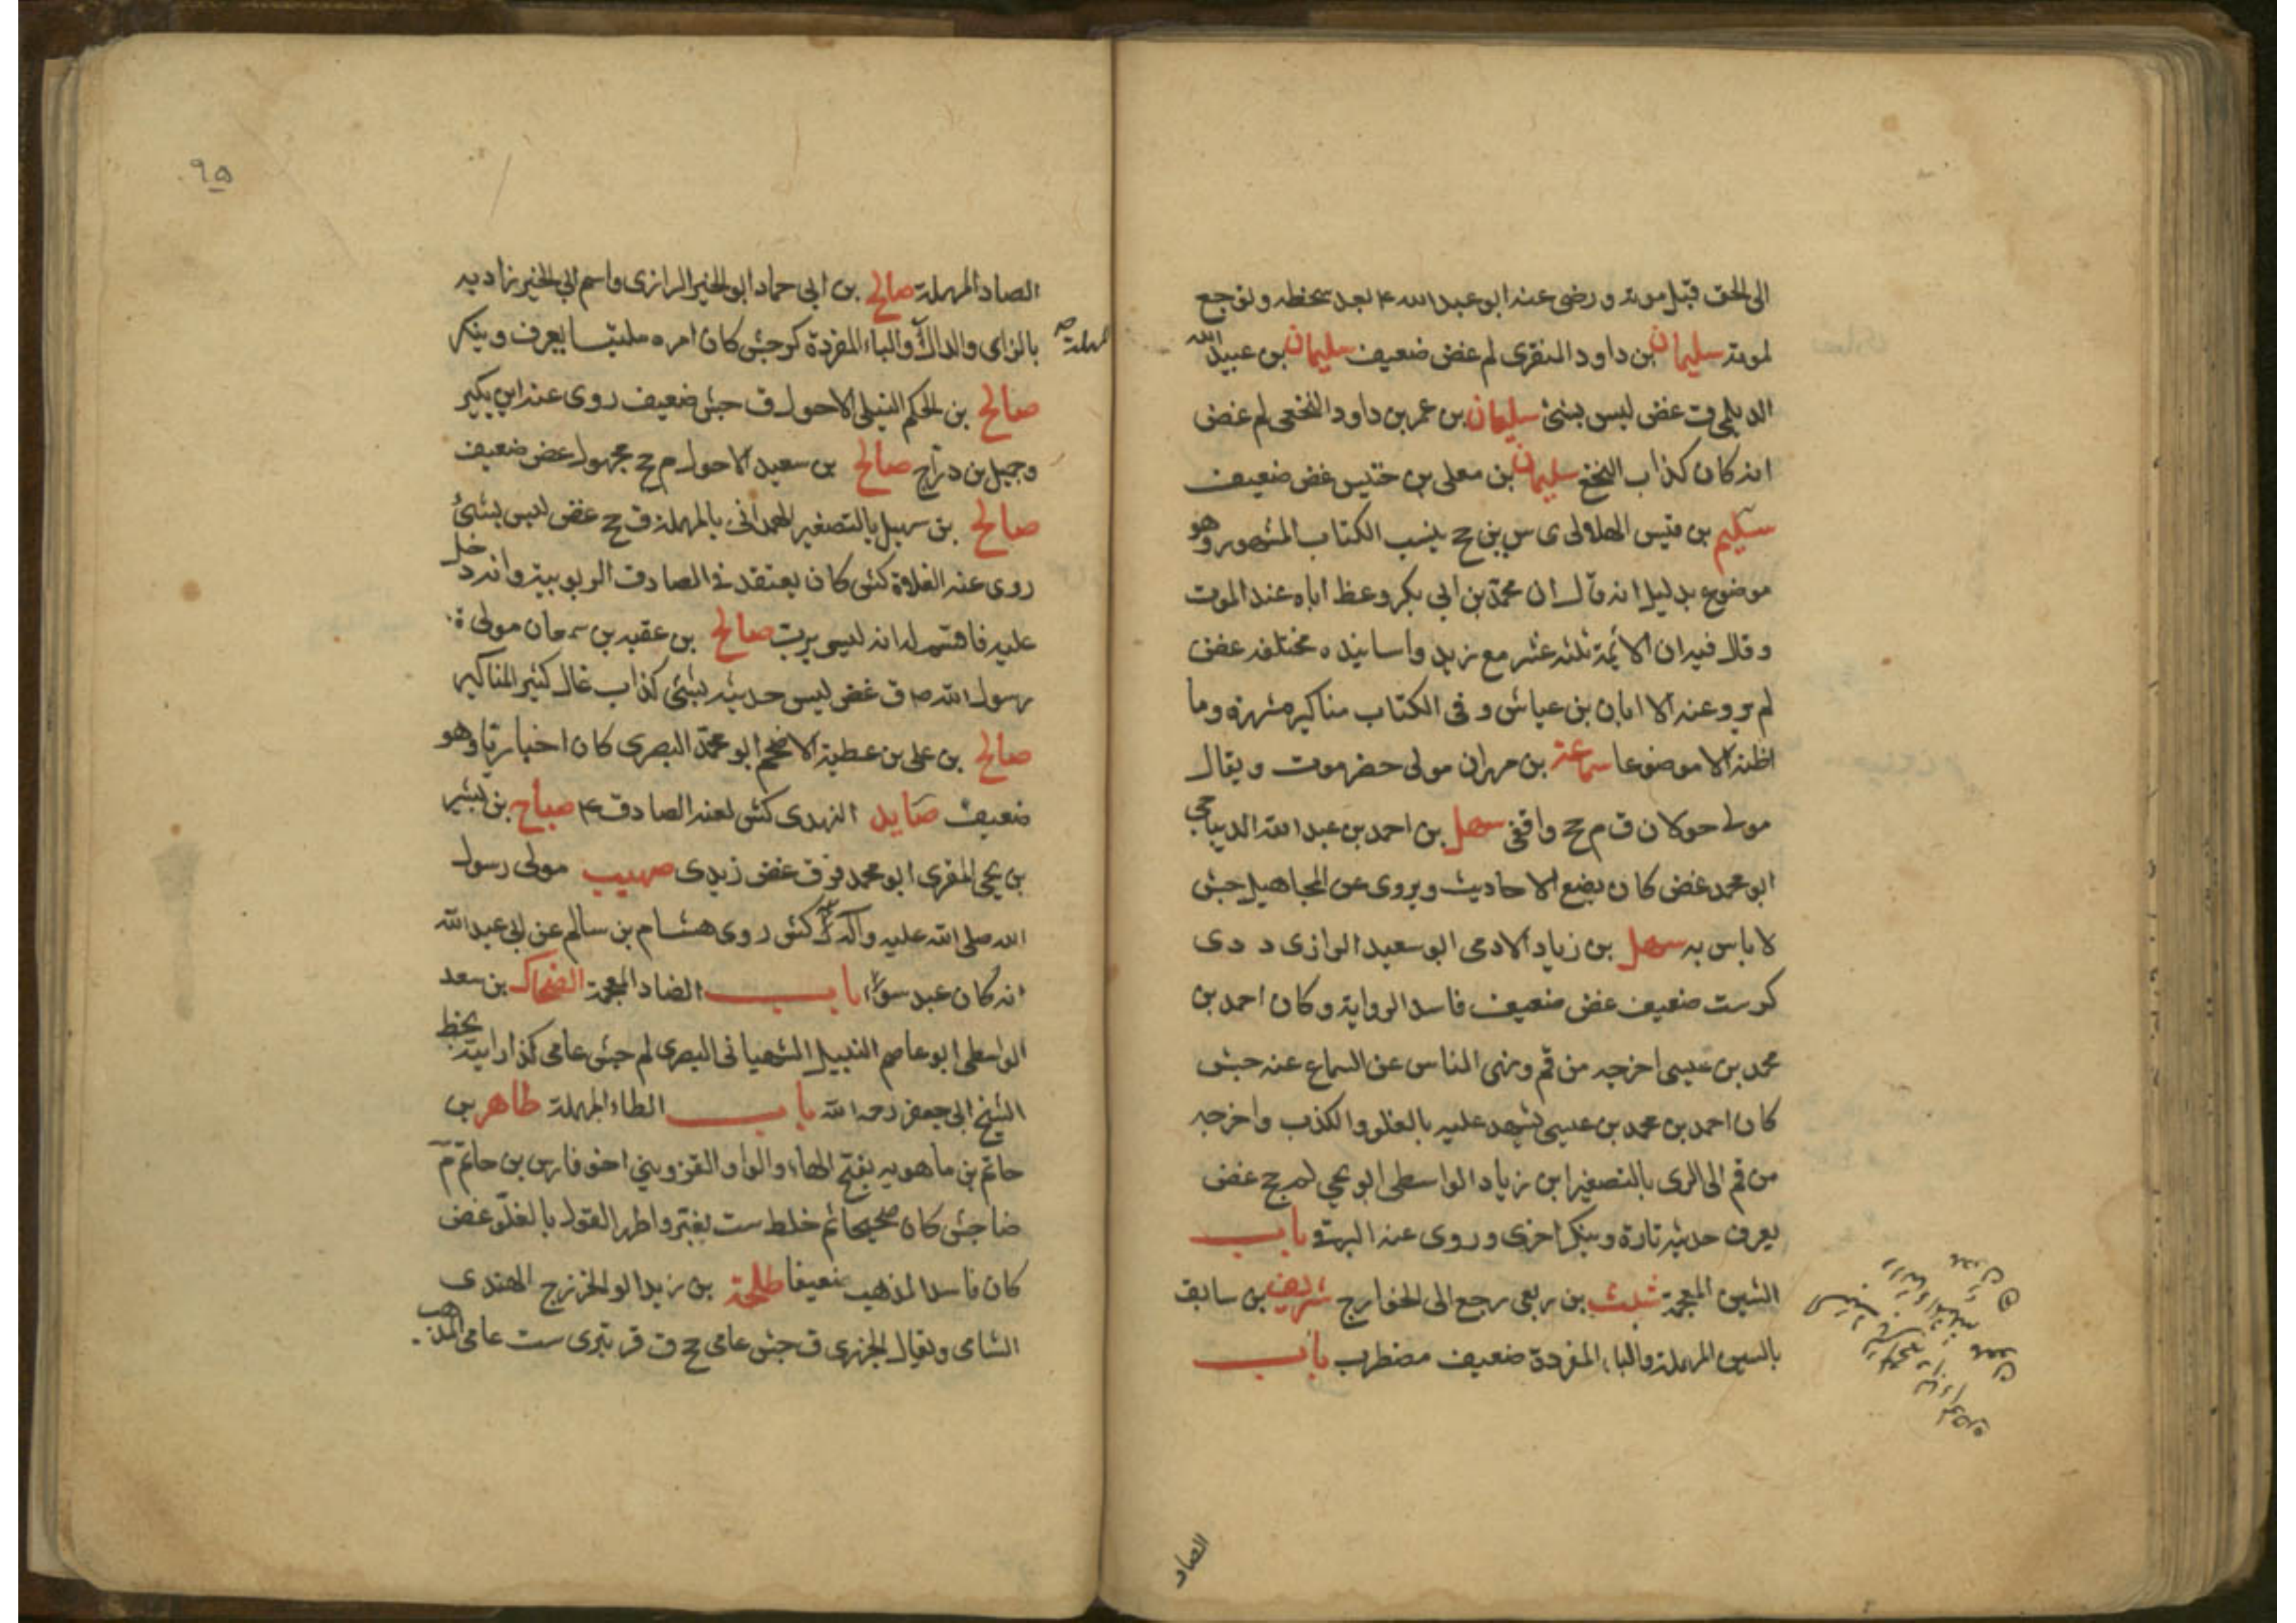 الى الحق قبل موته و رضى عنه ابو عبد الله ع بعد سخطه و توجع
لموته سليمان بن داود المنقرى لم غض ضعيف سليمان بن عبيد الله
الديلمى ق غض ليس بشئ سليمان بن عمر بن داود النخعى لم غض
انه كان كذاب النخع سليمان بن معلى بن خنيس غض ضعيف
سليم بن قيس الهلالى ى سين ين ج ينسب الكتاب المشهور وهو
موضوع بدليل انه قال ان محمد بن ابى بكر وعظ اباه عند الموت
و قال فيه ان الائمة ثلثه عشر مع زيد و اسانيده مختلفه غض
لم يرو عنه الا ابان بن عياش و فى الكتاب مناكير مشهرة وما
اظنه الا موضوعا سماعة بن مهران مولى حضرموت و يقال
مولى حولان ق م ج واقفى سهل بن احمد بن عبد الله الديباجى
ابو محمد غض كان يضع الاحاديث و يروى عن المجاهيل جش
لا باس به سهل بن زياد الادمى ابو سعيد الرازى د دى
كر ست ضعيف غض ضعيف فاسد الرواية و كان احمد بن
محمد بن عيسى اخرجه من قم و نهى الناس عن السماع عنه جش
كان احمد بن محمد بن عيسى يشهد عليه بالغلو و الكذب و اخرجه
من قم الى الرى بالتصغير ابن زياد الواسطى ابو يحيى لم جخ غض
يعرف حديثه تارة و ينكر اخرى و روى عنه البرقى باب
الشين المعجمة شبث بن ربعى رجع الى الخوارج شريف بن سابق
بالسين المهملة والباء المفردة ضعيف مضطرب باب
الصاد
٩٥
الصاد المهملة صالح بن ابى حماد ابو الخير الرازى و اسم ابى الخير زاديه
بالزاى والدال والباء المفردة كر جش كان امره ملتبسا يعرف و ينكر
مهملة
صالح بن الحكم النيلى الاحول ق جش ضعيف روى عنه ابن بكير
و جميل بن دراج صالح بن سعيد الاحول م ج مجهول غض ضعيف
صالح بن سهيل بالتصغير الهمدانى بالمهملة ق ج غض ليس بشئ
روى عنه الغلاة كش كان يعتقد فى الصادق الربوبية وانه دخل
عليه فاقسم له انه ليس برب صالح بن عقبه بن سمعان مولى
رسول الله ص ق غض ليس حديثه بشئ كذاب غال كثير المناكير
صالح بن على بن عطية الاضخم ابو محمد البصرى كان اخباريا وهو
ضعيف صايد النهدى كش لعنه الصادق ع صباح بن بشير
بن يحيى المقرى ابو محمد قر ق غض زيدى صهيب مولى رسول
الله صلى الله عليه و آله كش روى هشام بن سالم عن ابى عبد الله
انه كان عبد سوء باب الضاد المعجمة الضحاك بن سعد
الواسطى ابو عاصم النبيل الشيبانى البصرى لم جش عامى كذا رايته بخط
الشيخ ابى جعفر رحمه الله باب الطاء المهملة طاهر بن
حاتم بن ماهويه بفتح الهاء والواو القزوينى اخو فارس بن حاتم م
ضا جش كان صحيحا ثم خلط ست تغير و اظهر القول بالغلو غض
كان فاسد المذهب ضعيفا طلحة بن زيد ابو الخزرج الهندى
الشامى و يقال الجزرى ق جش عامى ج ق قر بترى ست عامى المذهب